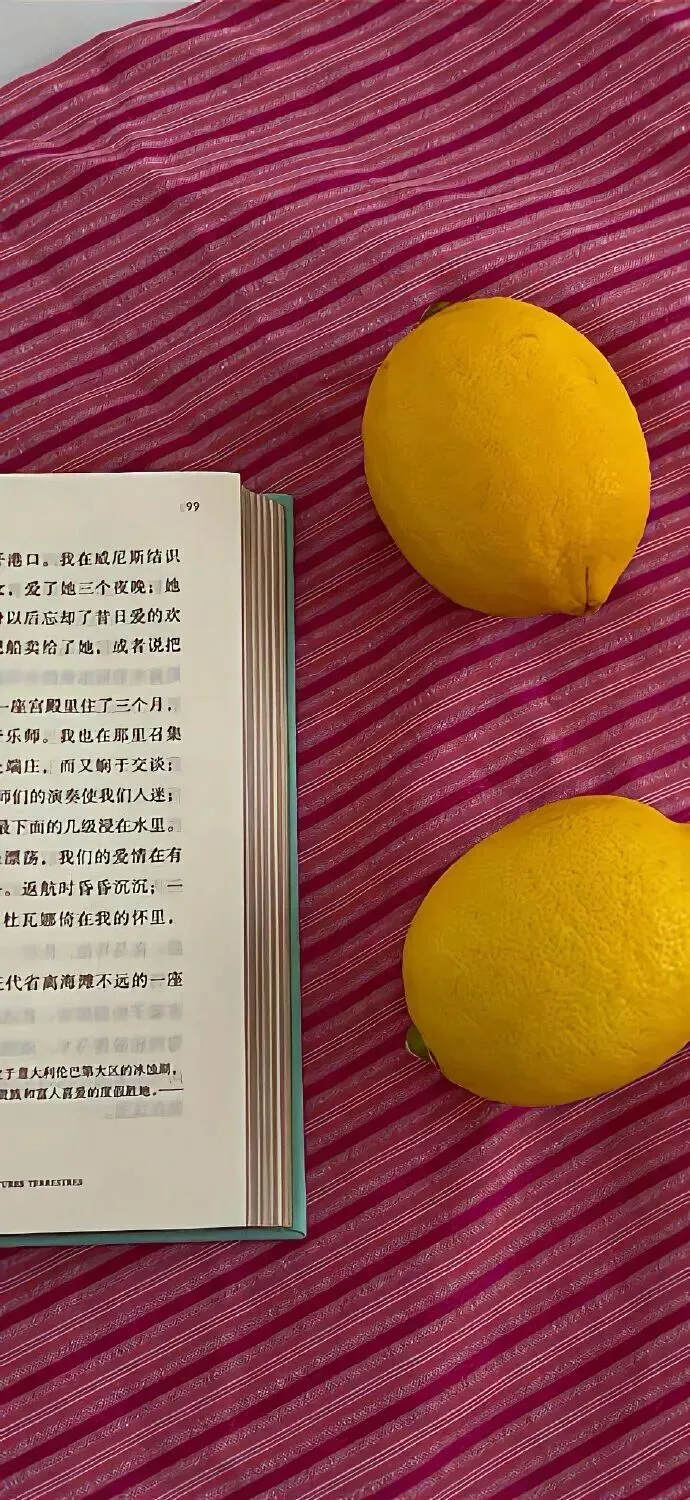 99
港口。我在威尼斯结识
爱了她三个夜晚；她
以后忘却了昔日爱的欢
船卖给了她，或者说把
一座宫殿里住了三个月，
乐师。我也在那里召集
端庄，而又娴于交谈；
师们的演奏使我们入迷；
最下面的几级浸在水里。
漂荡，我们的爱情在有
。返航时昏昏沉沉；一
杜瓦娜倚在我的怀里，
代省离海滩不远的一座
于意大利伦巴第大区的冰蚀湖，
和富人喜爱的度假胜地。——
TURES TERRESTRES